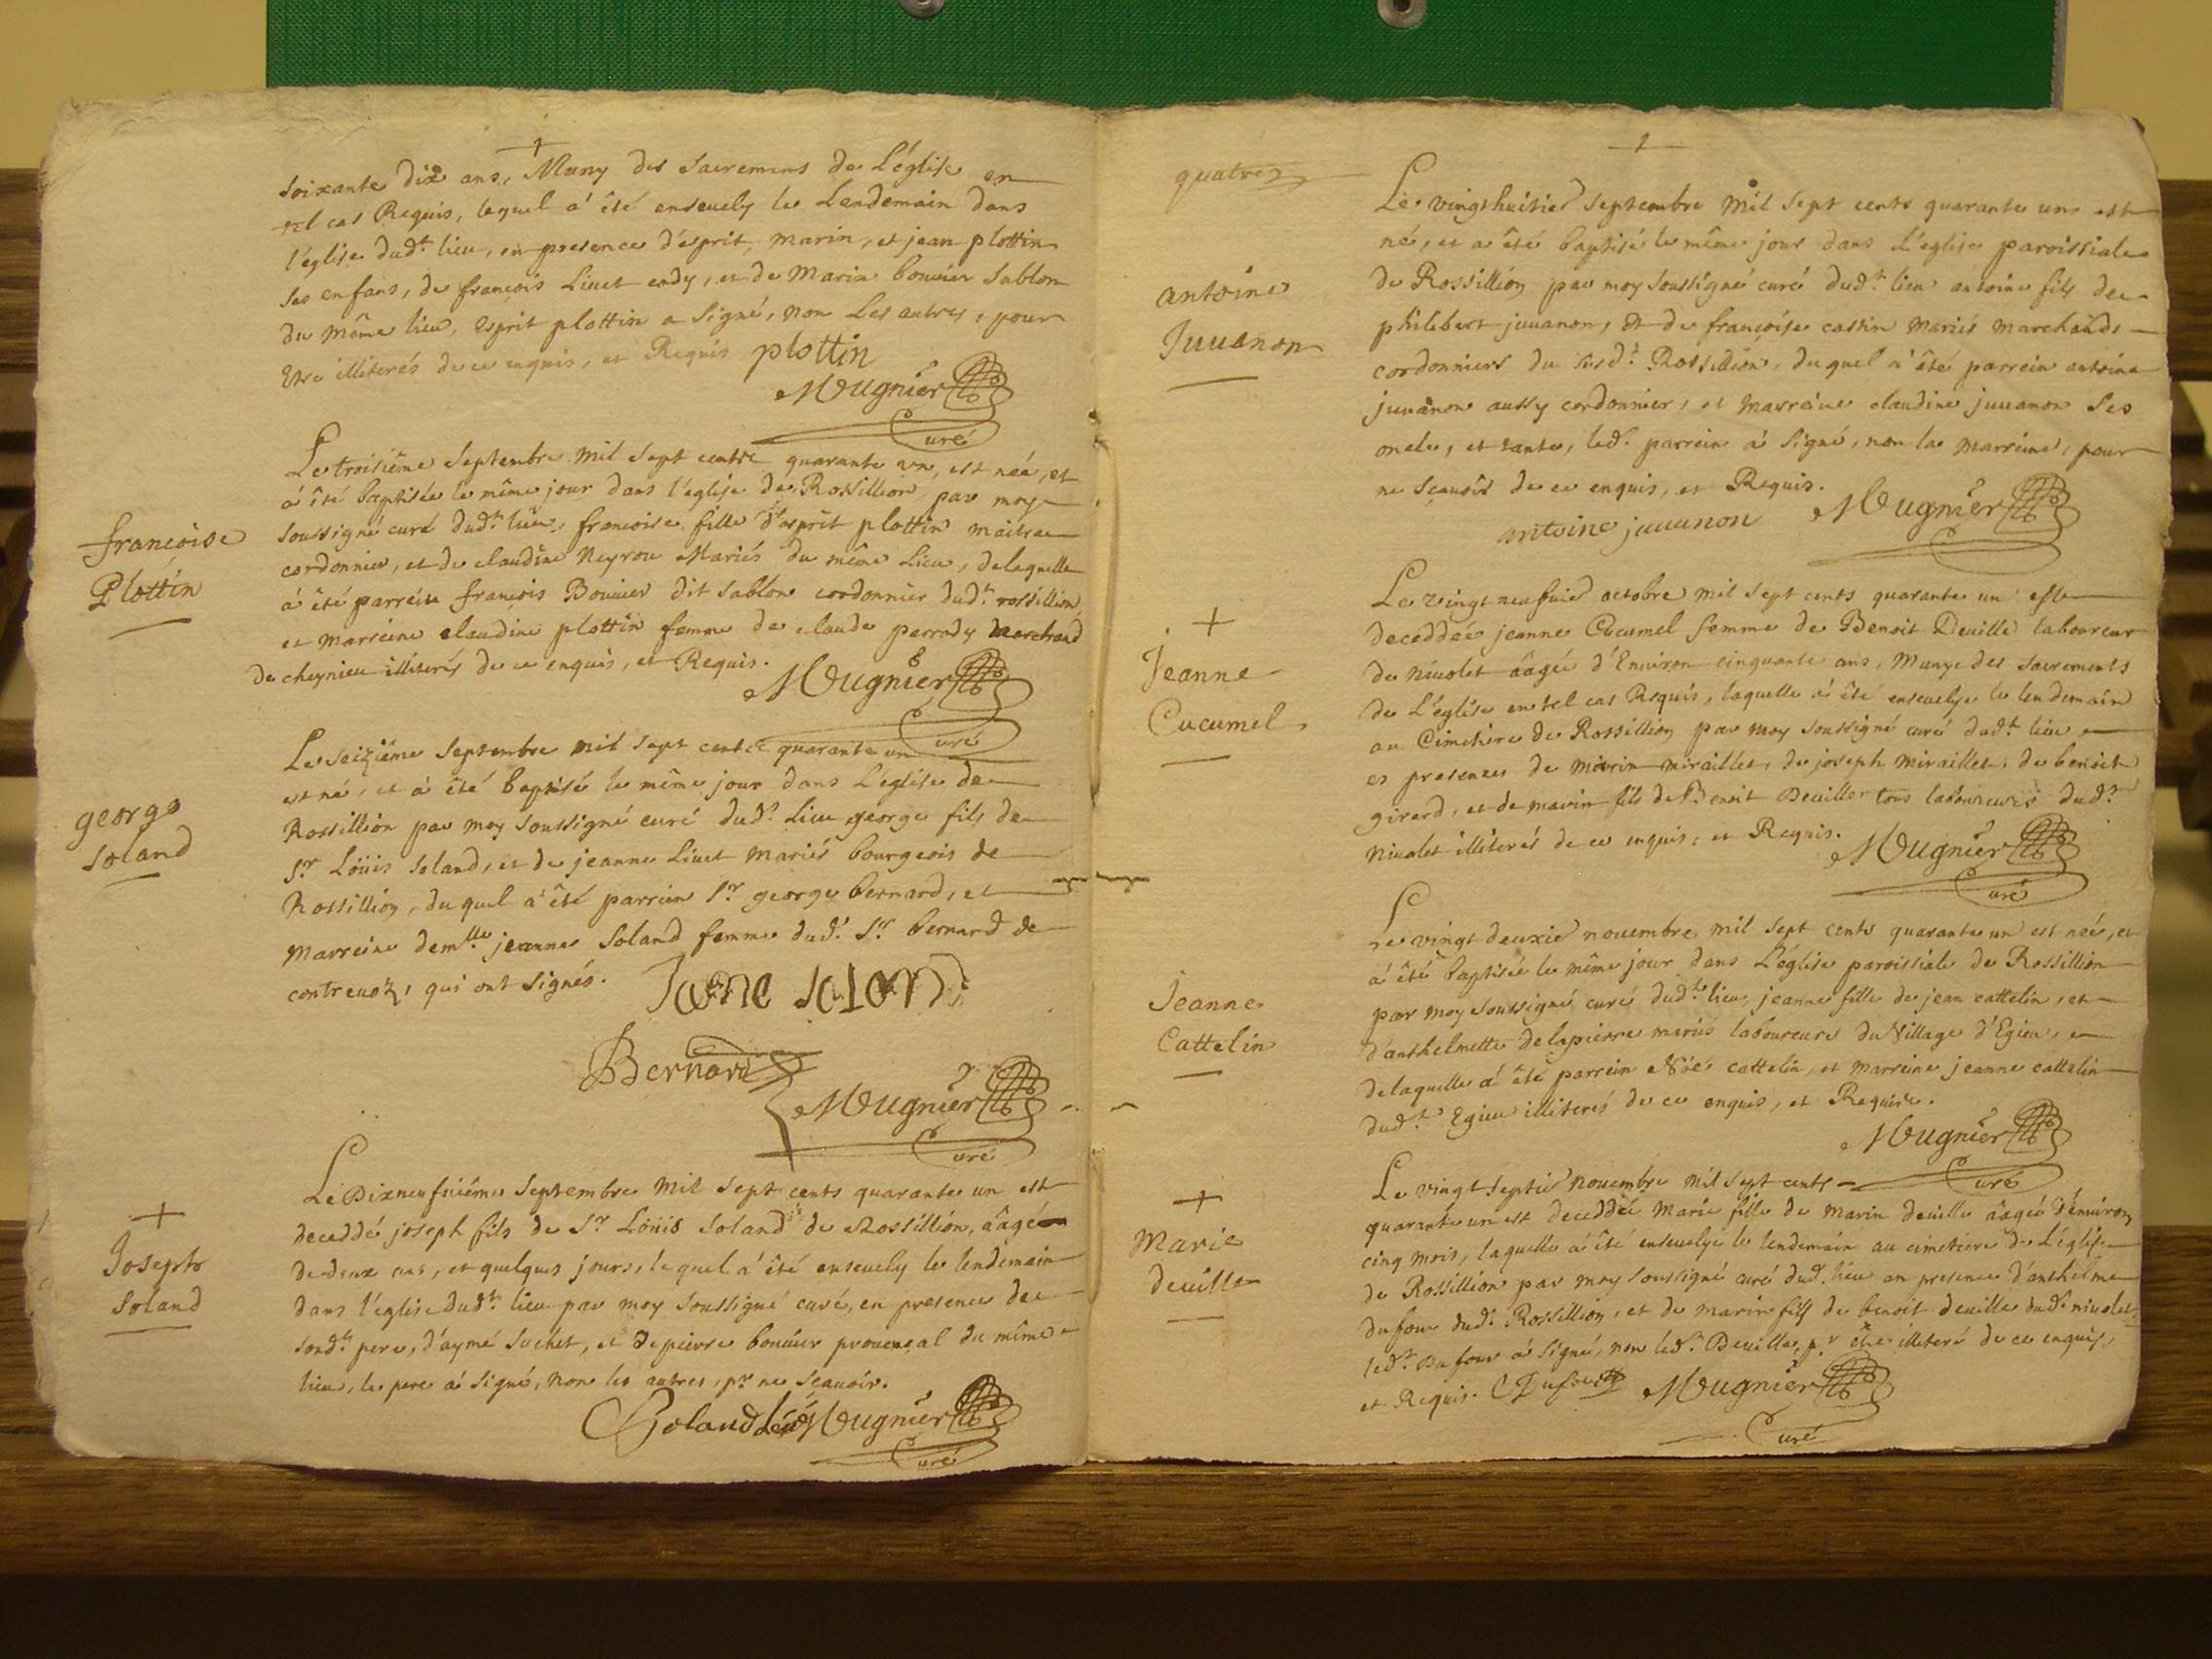 soixante dix ans, Muny des Sacremens de L'église en
tel cas Requis, lequel a' été ensevely le Lendemain dans
l'église dud.t lieu, en presence d'esprit, marin, et jean plottin
ses enfans, de francois Livet cady, et de Marin bouvier Sablon
du même lieu, Esprit plottin a Signé, non Les autres, pour
Etre illiterés de ce enquis, et Requis plottin
Mugnier
Curé
françoise
Plottin
Le troisiéme Septembre mil Sept cents quarante un, est née, et
a' été baptisée le même jour dans l'eglise de Rossillion par moy
soussigné curé dud.t lieu, francoise fille d'esprit plottin maitre
cordonnier, et de claudine Neyron Mariés du même Lieu, delaquelle
a' été parrein françois Bouvier dit Sablon cordonnier dud.t rossillion
et marreine claudine plottin femme de claude perrody marchand
de cheynieu illiterés de ce enquis, et Requis.
Mugnier
Curé
george
Soland
Le Seiziéme Septembre mil Sept cents quarante un
est né, et a' été baptisé le même jour dans L'église de
Rossillion par moy soussigné curé dud.t Lieu george fils de
S.r Loüis Soland, et de jeanne Livet mariés bourgeois de
Rossillion, du quel a' été parrein S.r george bernard, et
Marreine dem.lle jeanne Soland femme dud.t S.r bernard de
contrevoz, qui ont signés. Jane soland
Bernard
Mugnier
Curé
Joseph
Soland
Le Dixneufviéme Septembre Mil Sept cents quarante un est
deceddé joseph fils de S.r Loüis Soland de Rossillion, ââgé
de deux ans, et quelques jours, le quel a' été ensevely le lendemain
dans l'église dud.t lieu par moy Soussigné curé, en presence de
sond.t pere, d'aymé Suchet, et De pierre bouvier provençal du même
lieu, le pere a' Signé, non les autres, p.r ne Sçavoir.
Soland Mugnier
Curé
quatre
antoine
Juvanon
Le vingthuitie Septembre Mil Sept cents quarante un est
né, et a' été baptisé le même jour dans L'eglise paroissiale
de Rossillion par moy soussigné curé dud.t lieu antoine fils de
philibert juvanon, Et de françoise castin Mariés Marchands
cordonniers du susd.t Rossillion, du quel a' été parrein antoine
juvanon aussy cordonnier, et marreine claudine juvanon Ses
oncle, et tante, led.t parrein a' Signé, non la marreine, pour
ne sçavoir de ce enquis, et Requis.
antoine juvanon Mugnier
Curé
Jeanne
Cucumel
Le vingt neufvie octobre mil Sept cents quarante un est
deceddée jeanne Cucumel femme de Benoit Deville laboureur
de nivolet ââgée d'Environ cinquante ans, Munye des sacrements
de L'église en tel cas Requis, laquelle a' été ensevelye le lendemain
au Cimetiere de Rossillion par moy soussigné curé dud.t lieu
es presences de marin miraillet, de joseph miraillet, de benoit
girerd, et de marin fils de Benoit Deville tous laboureurs dud.t
Nivolet illiterés de ce enquis, et Requis.
Mugnier
Curé
Jeanne
Cattelin
Le vingt deuxie novembre mil Sept cents quarante un est née, et
a' été baptisée le même jour dans L'église paroissiale de Rossillion
par moy soussigné curé dud.t lieu, jeanne fille de jean cattelin, et
d'anthelmette delapierre mariés laboureurs du Village d'Egieu,
delaquelle a' été parrein Noé cattelin, et marreine jeanne cattelin
dud.t Egieu illiterés de ce enquis, et Requis.
Mugnier
Curé
Marie
deville
Le vingt Septie Novembre Mil Sept cents
quarante un est deceddée Marie fille de Marin deville ââgée d'environ
cinq mois, laquelle a' été ensevelye le lendemain au cimetiere de L'église
de Rossillion par moy soussigné curé dud.t lieu en presence d'anthelme
dufour dud.t Rossillion, et de marin fils de benoit deville dud.t nivolet
led.t Dufour a' Signé, non led.t Deville, p.r être illiteré de ce enquis,
et Requis. Dufour Mugnier
Curé